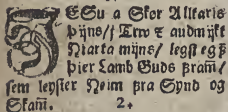 JESu a Skor Alltaris
Pijns/ Trw z audmijkt
Hiarta mijns/ legst eg ß
Pier Lamb Guds ßram/
sem leyster Heim ßra Synd og
Skam̃. 2.